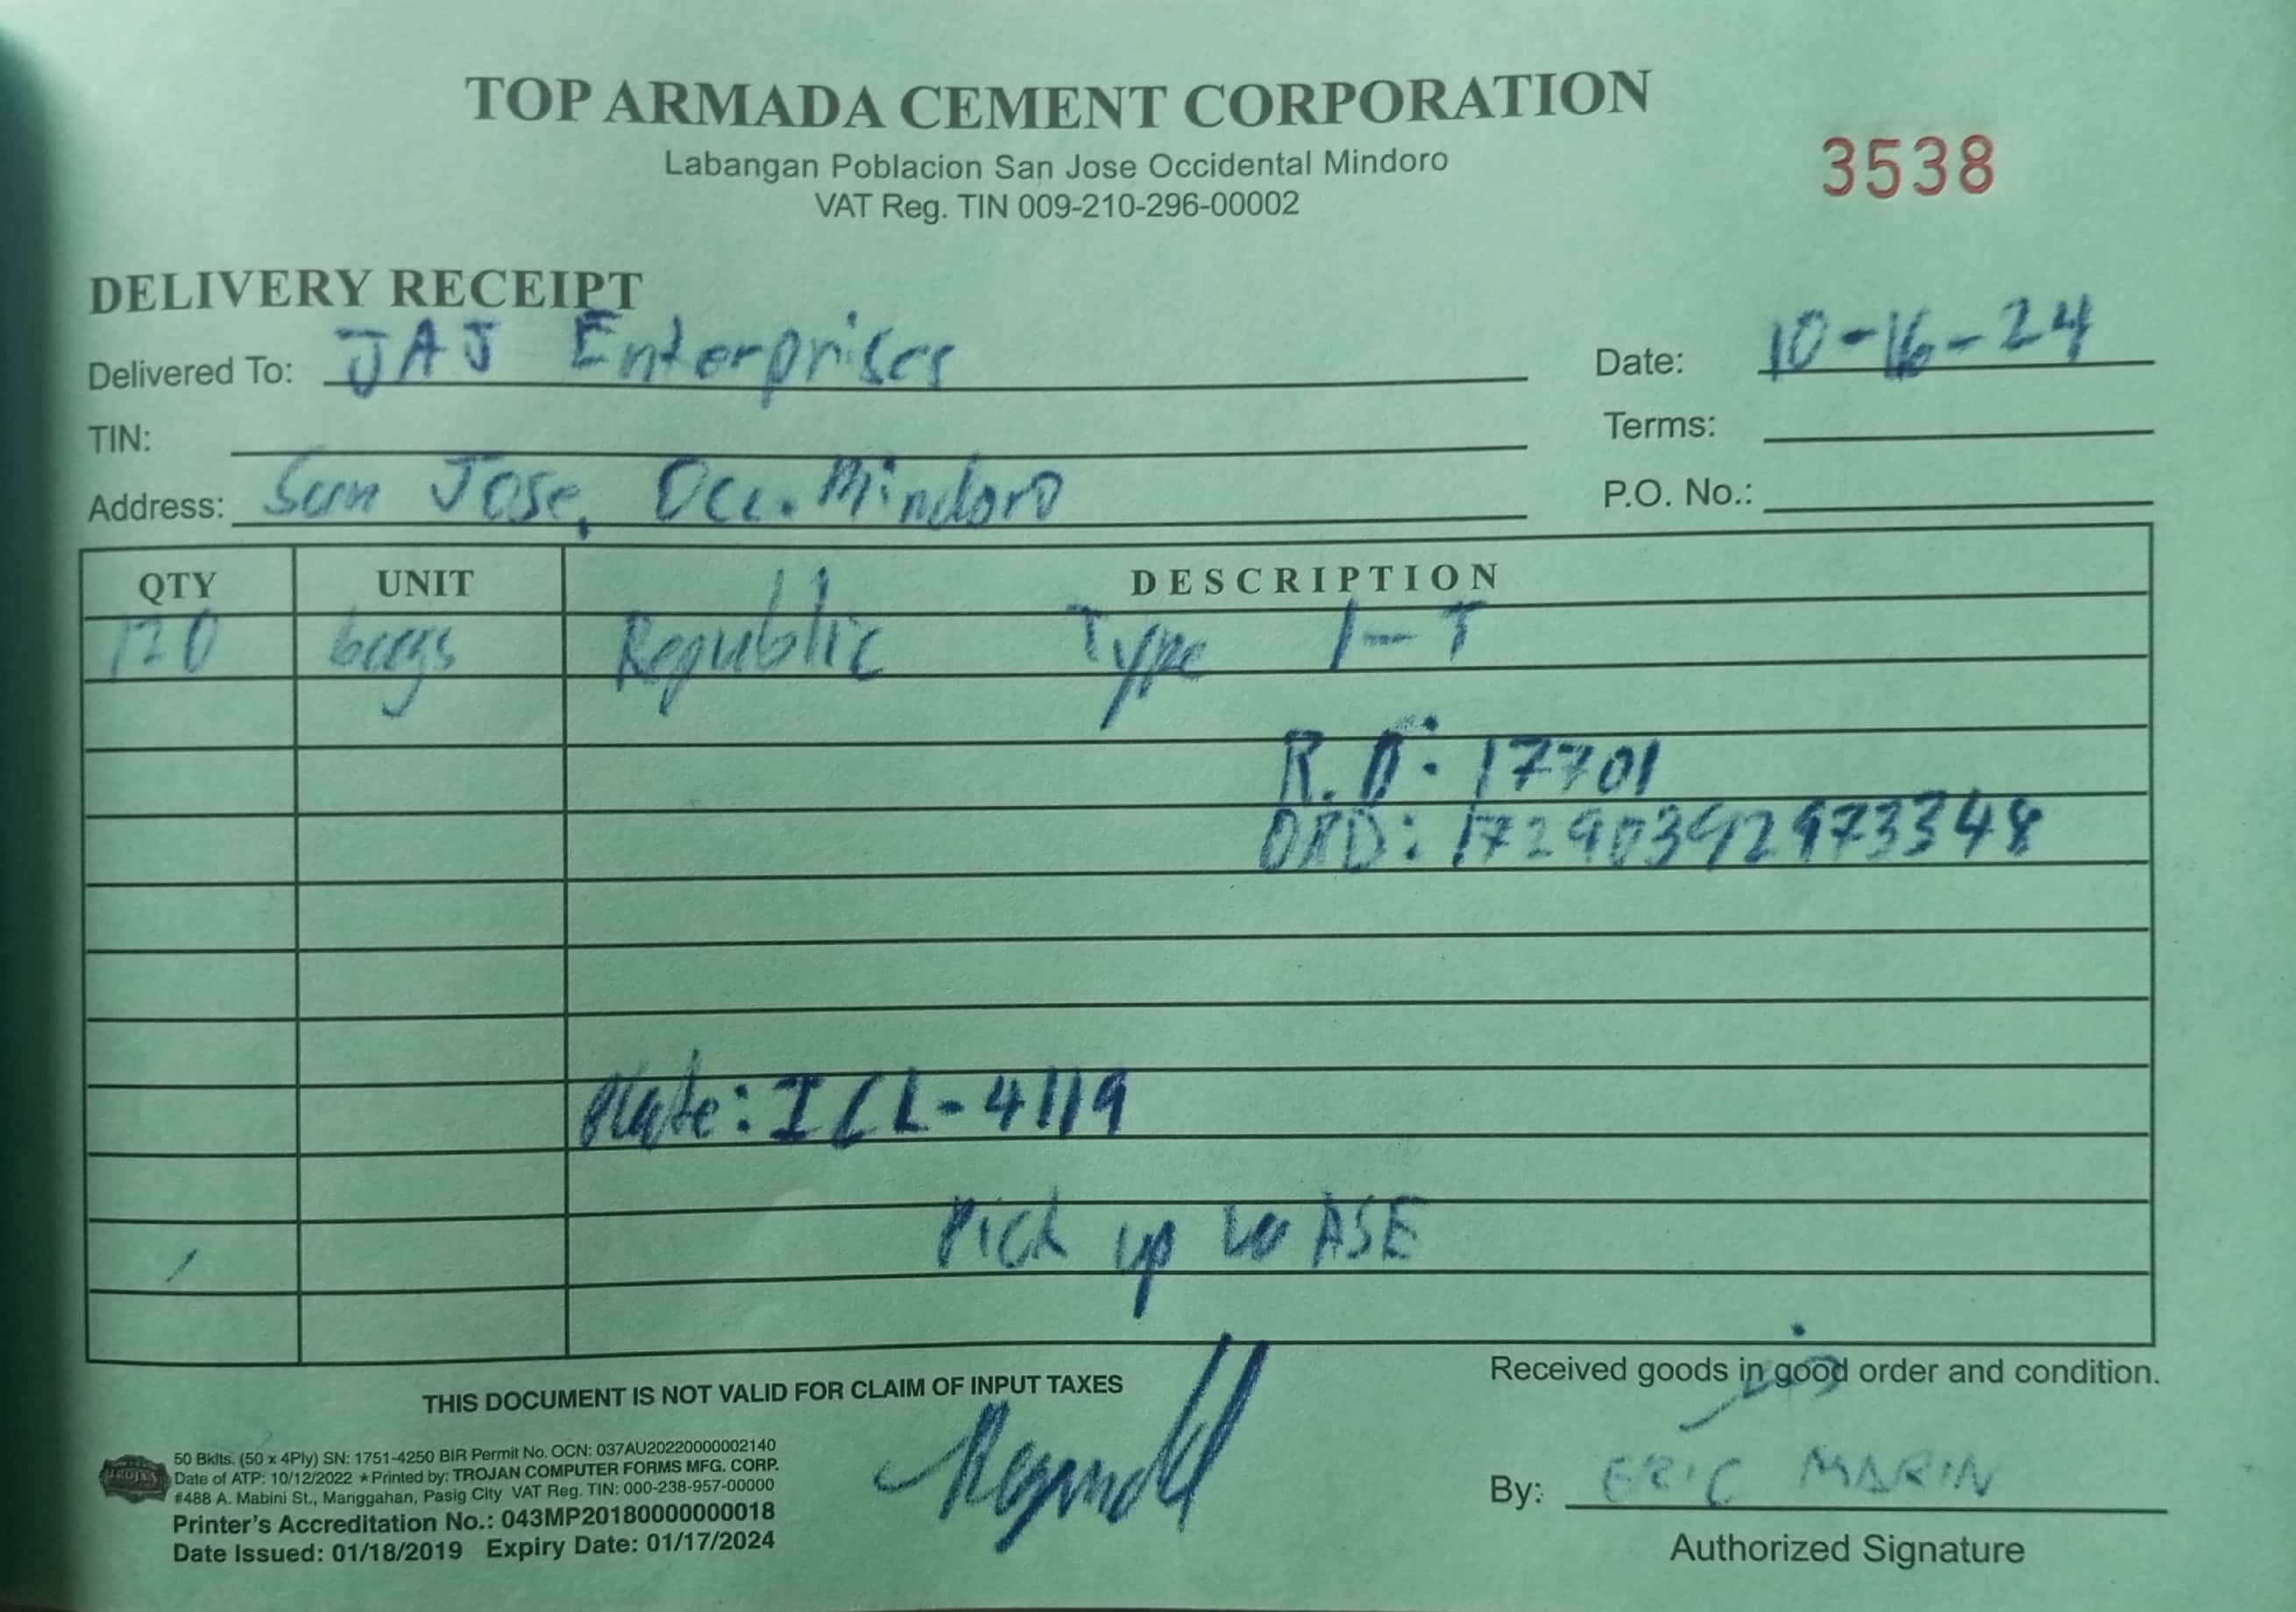 TOP ARMADA CEMENT CORPORATION
Labangan Poblacion San Jose Occidental Mindoro
VAT Reg. TIN 009-210-296-00002
3538
DELIVERY RECEIPT
Delivered To: JAJ Enterprises
Date: 10-16-24
TIN:
Terms:
Address: San Jose, Occ. Mindoro
P.O. No.:
QTY UNIT DESCRIPTION
120 bags Republic Type 1-T
17701
172903929 73348
Plate: ICL-4119
Pick up to ASE
THIS DOCUMENT IS NOT VALID FOR CLAIM OF INPUT TAXES
Received goods in good order and condition.
50 Bklts. (50 x 4Ply) SN: 1751-4250 BIR Permit No. OCN: 037AU20220000002140
Date of ATP: 10/12/2022 ★ Printed by: TROJAN COMPUTER FORMS MFG. CORP.
#488 A. Mabini St., Manggahan, Pasig City VAT Reg. TIN: 000-238-957-00000
Printer's Accreditation No.: 043MP20180000000018
Date Issued: 01/18/2019 Expiry Date: 01/17/2024
By: ERIC MARIN
Authorized Signature